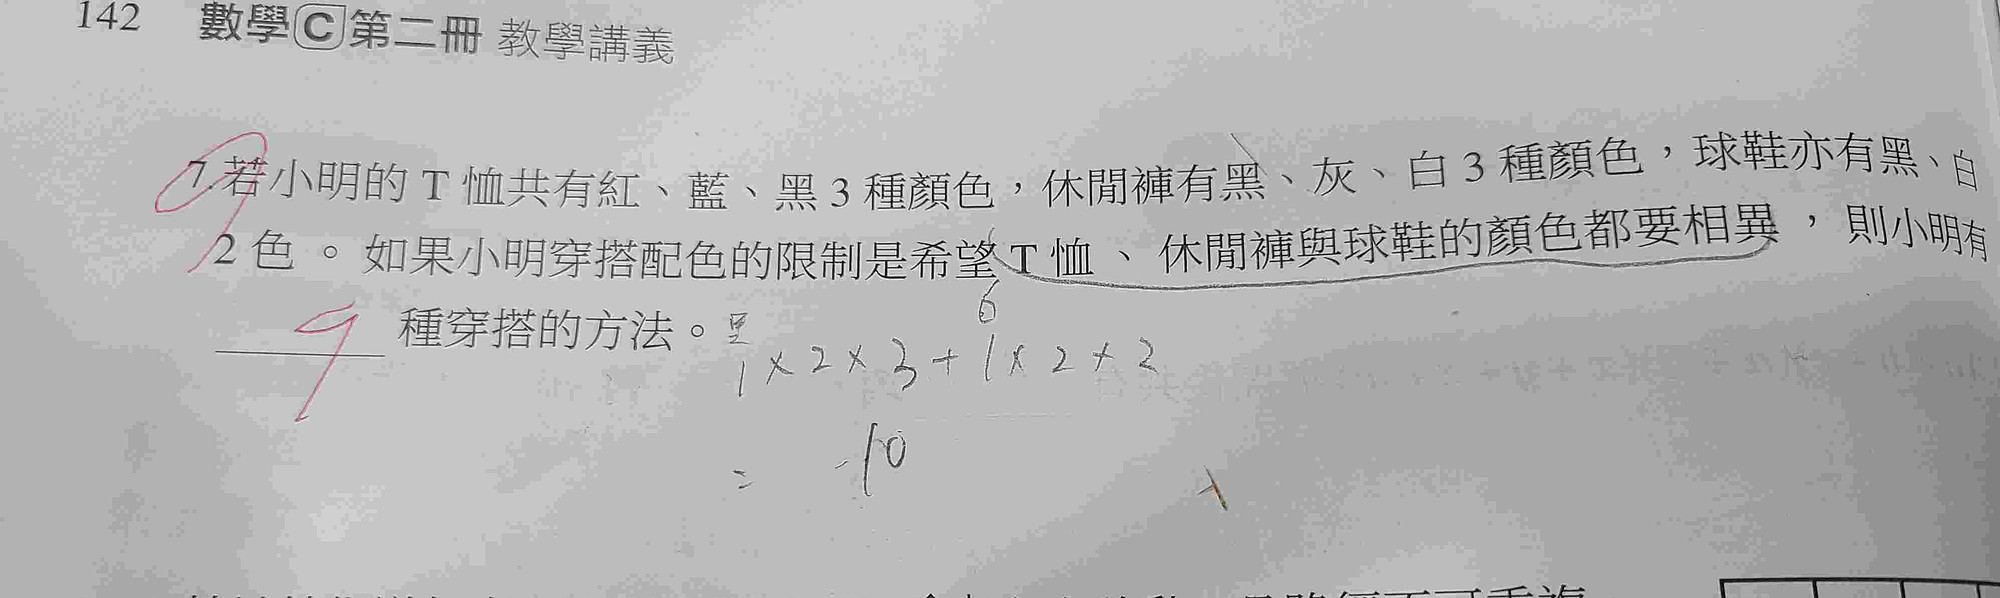 142 數學C第二冊 教學講義
7.若小明的 T 恤共有紅、藍、黑 3 種顏色，休閒褲有黑、灰、白 3 種顏色，球鞋亦有黑、白
2 色。如果小明穿搭配色的限制是希望 T 恤、休閒褲與球鞋的顏色都要相異，則小明有
9 種穿搭的方法。黑
6
1×2×3+1×2×2
= 10